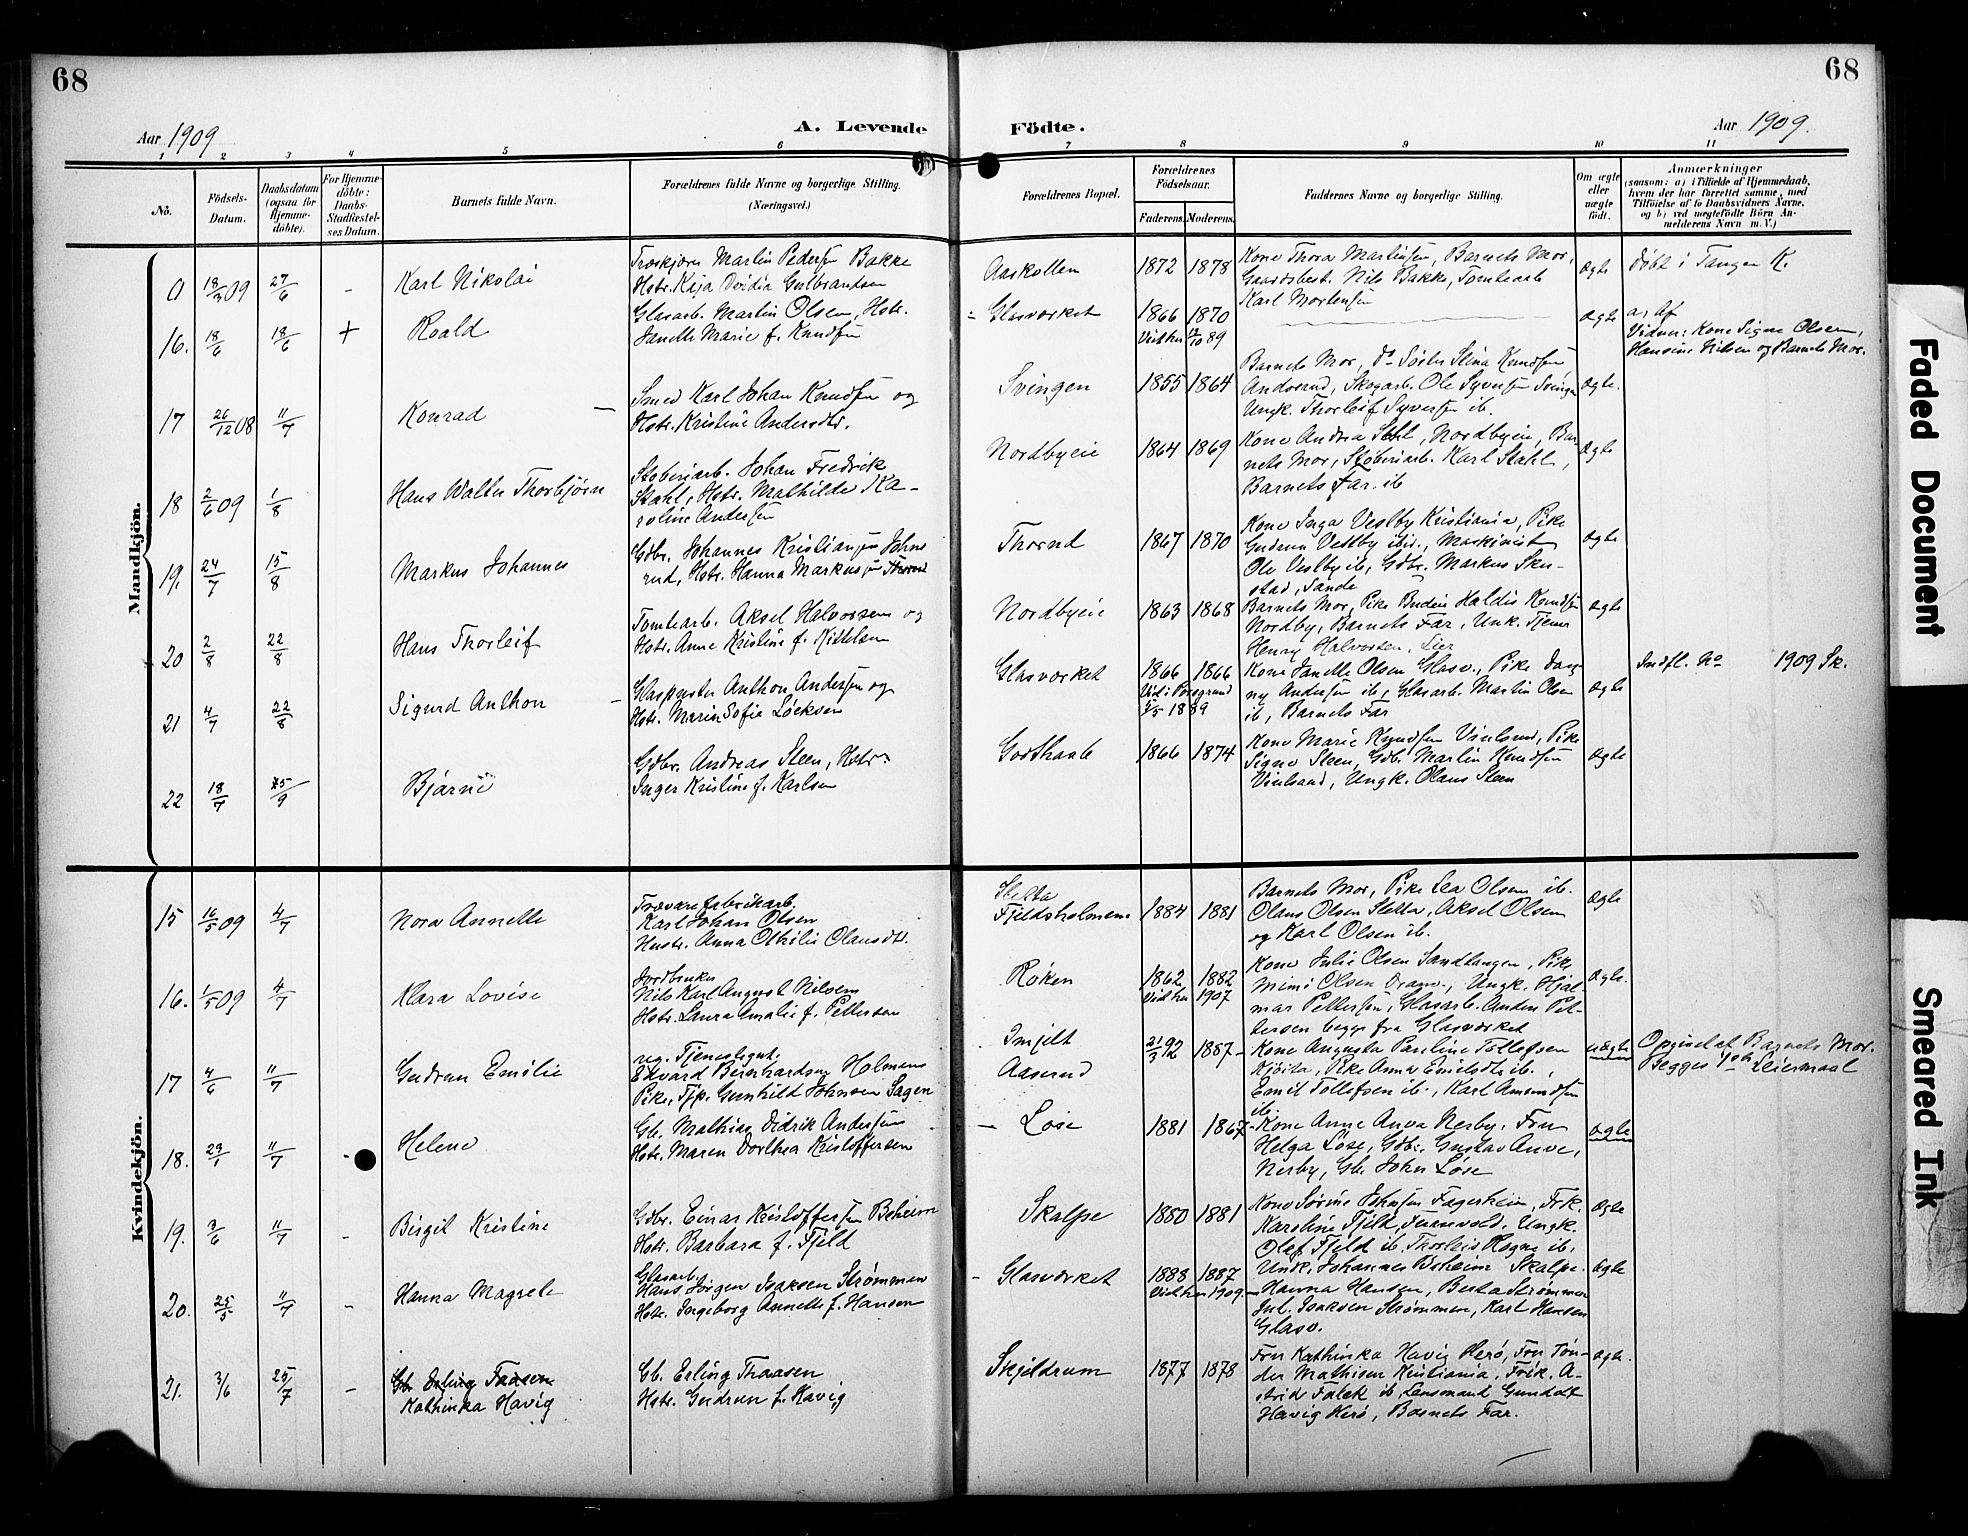 68
68
Aar 1909
A. Levende
Födte.
Aar 1909.
1 2 3 4 5 6 7 8 9 10 11
No.
Födsels-
Datum.
Daabsdatum
(ogsaa for
Hjemme-
döbte).
For Hjemme-
döbte:
Daabs-
Stadfæstel-
ses Datum.
Barnets fulde Navn.
Forældrenes fulde Navne og borgerlige Stilling.
(Næringsvei.)
Forældrenes Bopæl.
Forældrenes
Födselsaar.
Faderens.
Moderens.
Faddernes Navne og borgerlige Stilling.
Om ægte
eller
uægte
født.
Anmærkninger
(saasom: a) i Tilfælde af Hjemmedaab,
hvem der har forrettet samme, med
Tilföielse af to Daabsvidners Navne,
og b) ved uægtefödte Börn An-
melderens Navn m. V.)
Mandkjön.
0 18/3 09 27/6 -
Karl Nikolai
Martin Pedersen Bakke
Hstr. Kaja Ovidia Gulbrandsen
Aaskollen
1872 1878
Kone Thora Martinsen, Barnets Mor,
Gaardsbest. Nils Bakke, Tomtearb
Karl Mortensen
ægte
Døbt i Tangen K.
16. 18/6 18/6 +
Roald
Glasarb. Martin Olsen, Hstr.
Janette Marie f. Knudsen
Glasværket
1866 1870
Vied her 12/10 89
ægte
a, Af
Vidner: Kone Signe Olsen,
Hansine Nilsen og Barnets Mor.
17 26/12 08 11/7
Konrad
Smed Karl Johan Knudsen og
Hstr. Kristine Andersdtr.
Svingen
1855 1864
Barnets Mor, Ds Søster Stina Knudsen
Andersrud, Skogarb. Ole Syversen Svingen
Ungk. Thorleif Syversen ib.
ægte.
18 2/6 09 1/8
Hans Walter Thorbjørn
Støberiarb. Johan Fredrik
Stahl, Hstr. Mathilde Ka-
roline Andersen
Nordbyeie
1864 1869
Kone Andrea Stahl, Nordbyeie, Bar-
nets Mor, Støberiarb. Karl Stahl,
Barnets Far. ib
ægte
19. 24/7 15/8
Markus Johannes
Gdbr. Johannes Kristiansen Johns
rud, Hstr. Hanna Markusen
Thorud
1867 1870
Kone Inga Vestby Kristiania, Pike
Gudrun Vestby ibid., Maskinist
Ole Vestby ib, Gdbr. Markus Sku-
stad, Sande
ægte
20 2/8 22/8
Hans Thorleif
Tomtearb. Aksel Halvorsen og
Hstr. Anne Kristine f. Kittelsen
Nordbyeie
1863 1868
Barnets Mor, Pike Haldis Knudsen
Nordby, Barnets Far, Unk.
Henry Halvorsen, Lier
ægte
21 4/7 22/8
Sigurd Anthon
Glaspuster Anthon Andersen og
Hstr. Marin Sofie Løcksen
Glasværket
1866 1866
Vied i Porsgrund
5/5 1889
Kone Janette Olsen Glasv., Pike Dag-
ny Andersen ib, Glasarb. Martin Olsen
ib, Barnets Far
ægte
Indfl. No 1909 Sk.
22 18/7 25/9
Bjarne
Gdbr. Andreas Steen, Hstr.
Inger Kristine f. Karlsen
Godthaab
1866 1874
Kone Marie Knudsen Vinlund, Pike
Signe Steen, Gdb. Martin Knudsen
Ungk. Olaus Steen
ægte
Kvindekjön.
15 16/5 09 4/7
Nora Annette
Trævarefabrikarb.
Karl Johan Olsen
Hustr. Anna Othilie Olausdtr.
Sletta
Fjeldsholmene
1884 1881
Barnets Mor, Pike Lea Olsen ib.
Olaus Olsen Sletta, Aksel Olsen
og Karl Olsen ib.
ægte
16. 1/5 09 4/7
Klara Lovise
Jordbruker
Nils Karl August Nilsen
Hstr. Laura Amalie f. Pettersen
Røken
1862 1882
Vied her 1907
Kone Julie Olsen Sandtangen, Pike
Mimi Olsen Dramn., Ungk. Hjal-
mar Pettersen, Glasarb. Anders Pet-
tersen begge fra Glasværket
ægte.
17 4/6 11/7
Gudrun Emilie
ug. Tjenestegut.
Edvard Bernhardsen Holmen
Pike, Tjp. Gunhild Johnsen Sagen
Aaserud
21/3 92 1887
Kone Augusta Pauline Tollefsen
Pike Anna Emilsdtr ib.,
Emil Tollefsen ib., Karl Amundsen
ib.
uægte
Opgivet af Barnets Mor.
Begges 1ste Leiermaal
18. 29/1 11/7 -
Helene
Gb. Mathias Didrik Andersen
Hstr. Maren Dorthea Kristoffersen
Løse
1881 1867
Kone Anne Anva Nerby, Fru
Helga Løse, Gdbr. Gustav Anve,
Nerby, Gb. John Løse
ægte
19. 3/6 11/7 -
Birgit Kristine
Gdbr. Einar Kristoffersen Beheim
Hstr. Barbara f. Fjeld
Skalpe
1880 1881
Kone Sørine Johnsen Fagerheim, Frk.
Karoline Fjeld, Furuvold, Ungk.
Olaf Fjeld ib, Thorleif Rogne ib,
Unk. Johannes Beheim Skalpe.
ægte
20. 25/5 11/7 -
Hanna Magrete
Glasarb.
Hans Jørgen Isaksen Strømmen
Hstr. Ingeborg Annette f. Hansen
Glasværket
1888 1887
Vied her 1909
Hanna Hansen, Berta Strømmen
Jul. Isaksen Strømmen, Karl Hansen
Glasv.
ægte
21. 3/6 25/7 -
Gb. Erling Faasen
Kathinka Havig
Gb. Erling Thaasen
Hstr. Gudrun f. Havig
Skjeldrum
1877 1878
Fru Kathinka Havig Herø, Fru Ton-
der Mathisen Kristiania, Frøk. A-
strid Falck ib, Lensmand Gundolf
Havig Herø, Barnets Far.
ægte.
Faded Document
Smeared Ink